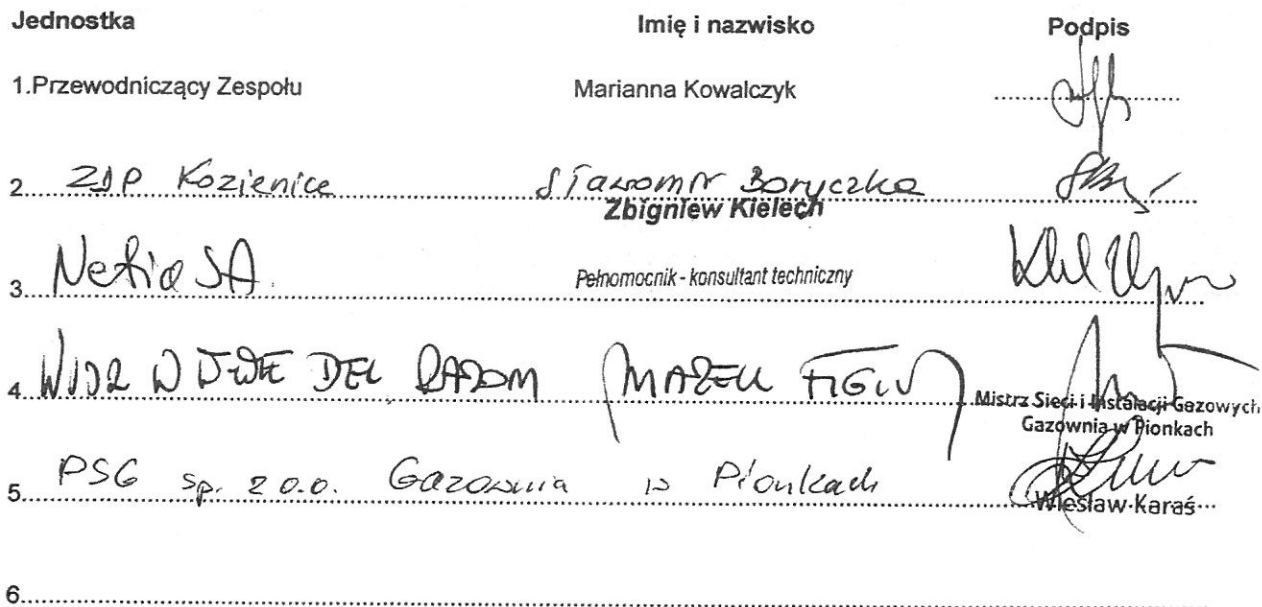 Jednostka Imię i nazwisko Podpis
1.Przewodniczący Zespołu Marianna Kowalczyk
2. ZDP Kozienice Sławomir Boryczka
Zbigniew Kielech
3. Netia SA Pełnomocnik - konsultant techniczny
4. DEL RADOM
Mistrz Sieci i Instalacji Gazowych
Gazownia w Pionkach
5. PSG sp. z o.o. Gazownia w Pionkach
Wiesław Karaś
6.